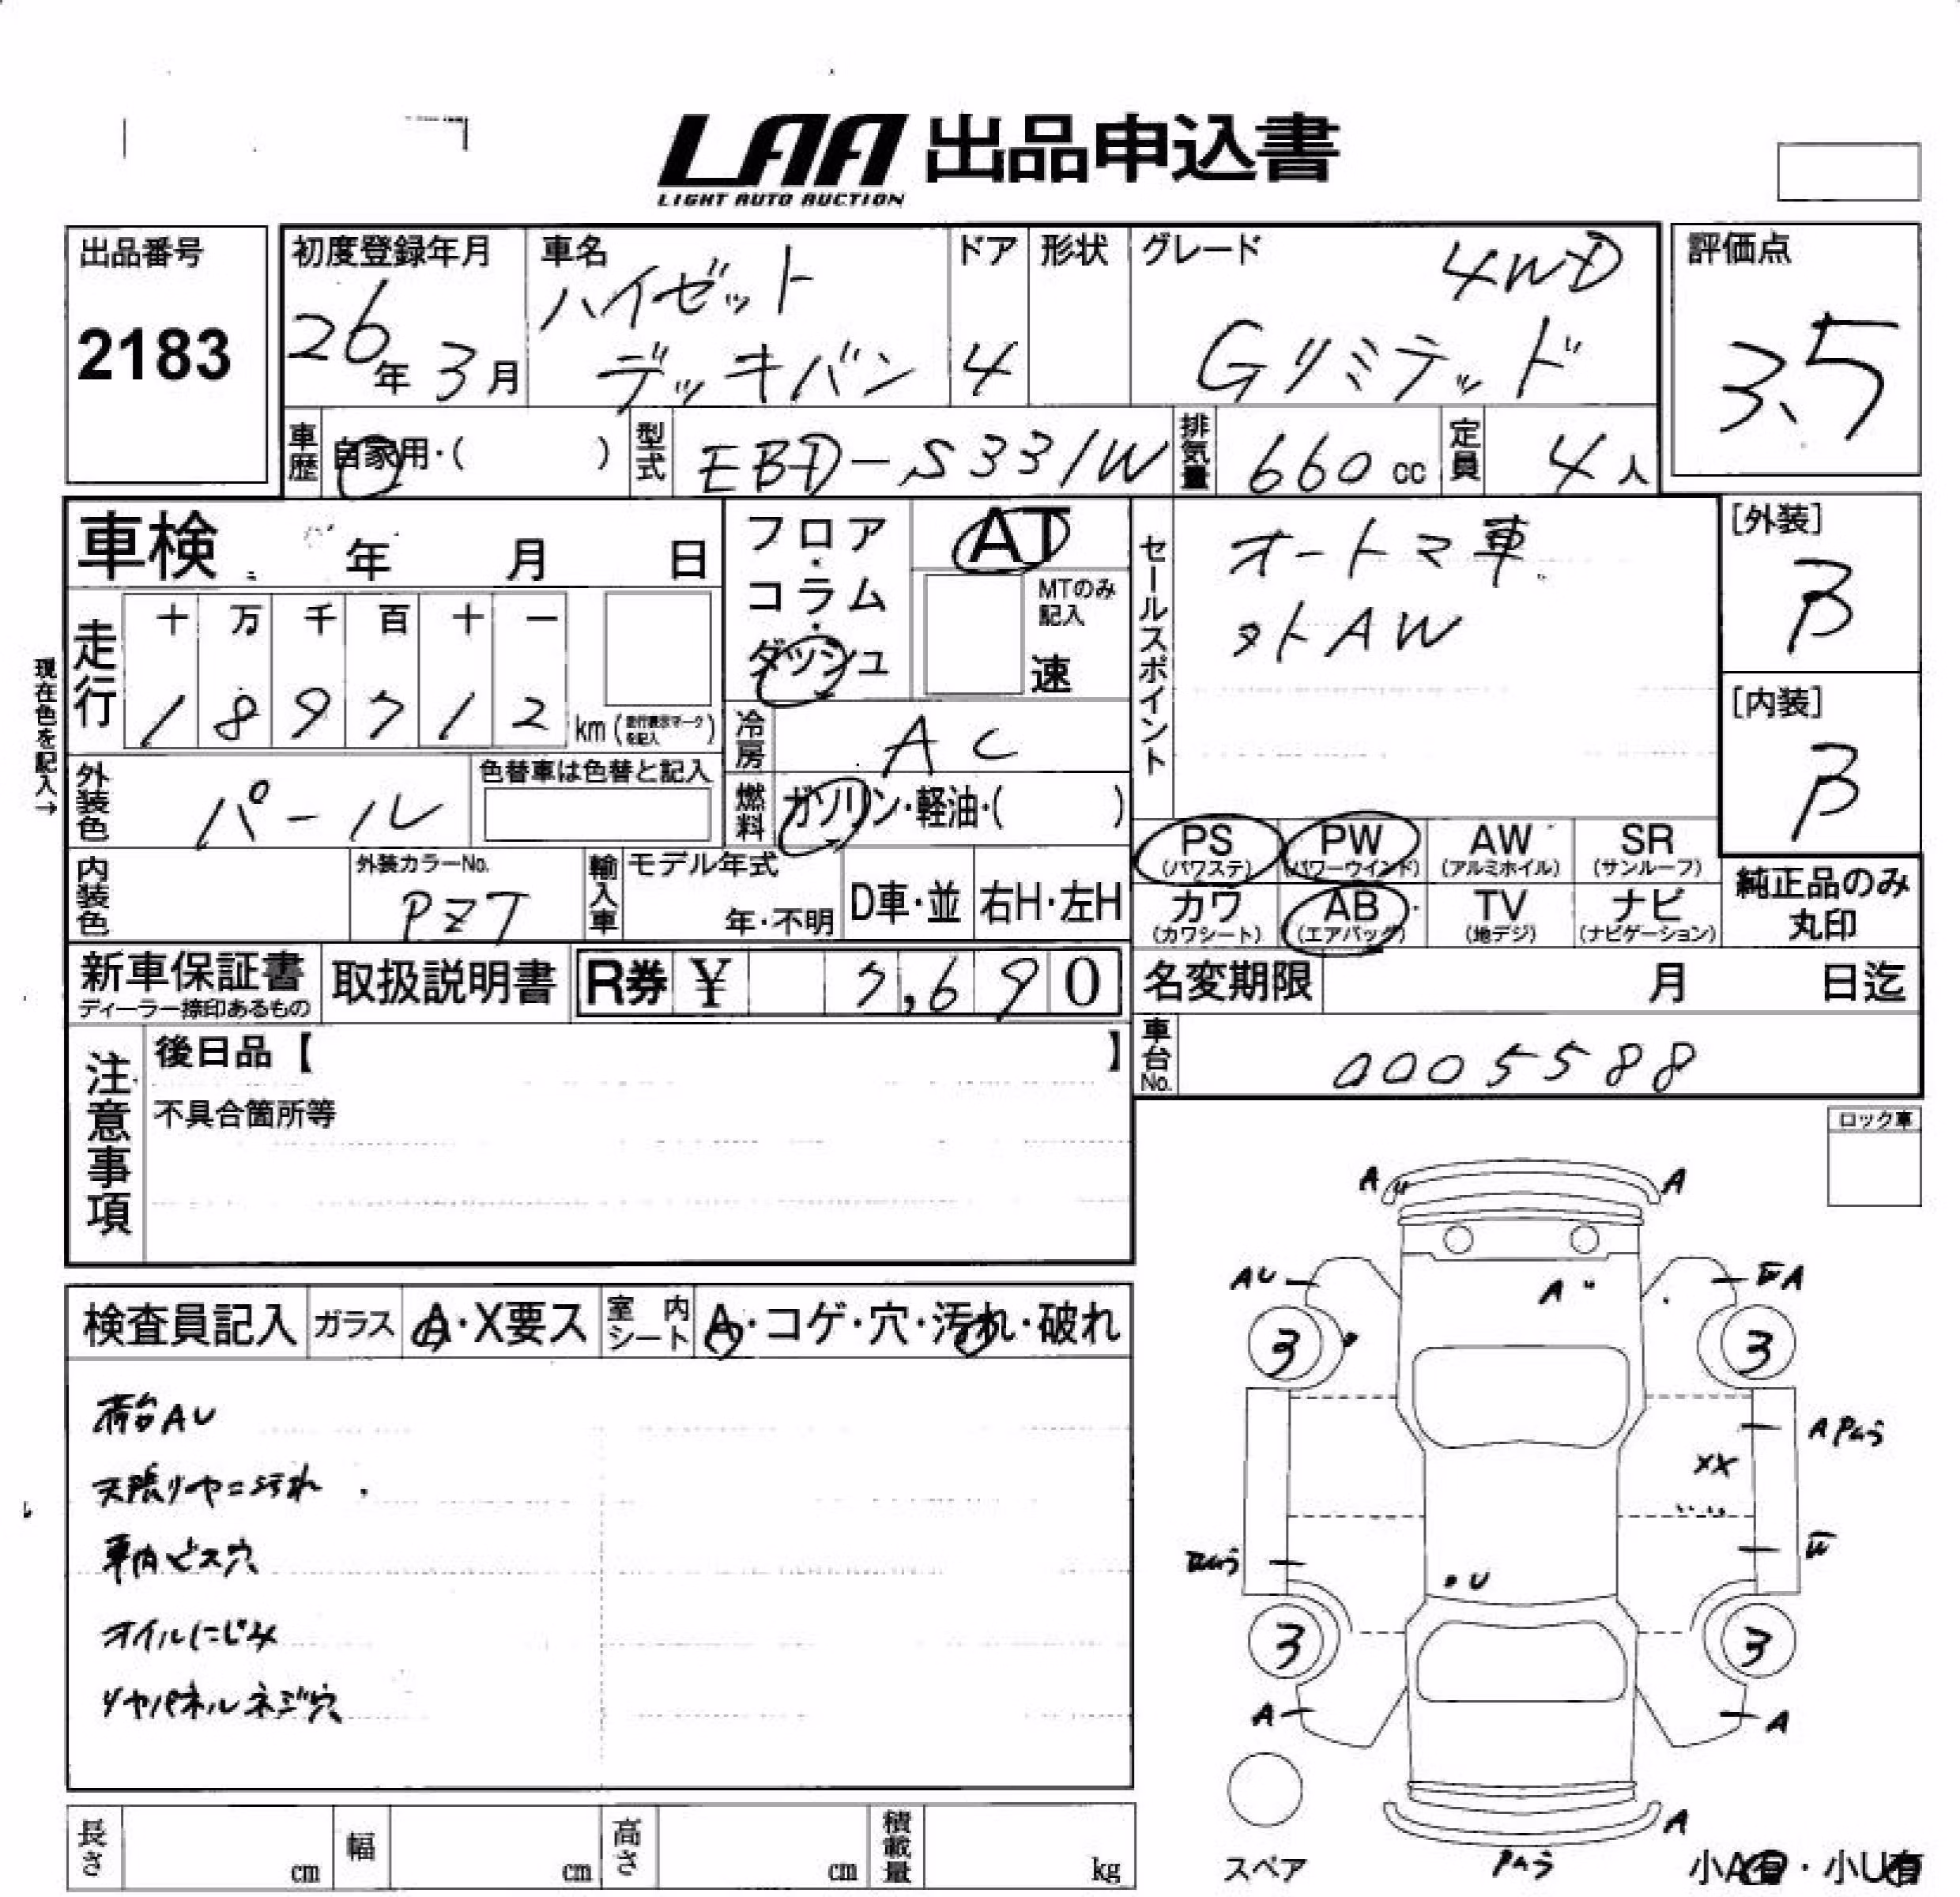 LAA 出品申込書
LIGHT AUTO AUCTION
出品番号
2183
初度登録年月
26年 3月
車名
ハイゼット
デッキバン
ドア
4
形状
グレード
4WD
Gリミテッド
評価点
3.5
車歴
自家用・( )
型式
EBD-S331W
排気量
660 cc
定員
4 人
車検 年 月 日
フロア・
コラム・
ダッシュ
AT
MTのみ
記入
速
セールスポイント
オートマ車
外AW
[外装]
B
[内装]
B
現在色を記入→
走行
十 万 千 百 十 一
1 8 9 7 1 2
km (走行表示マークを記入)
冷房
AC
外装色
パール
色替車は色替と記入
燃料
ガソリン・軽油・( )
PS
(パワステ)
PW
(パワーウインド)
AW
(アルミホイル)
SR
(サンルーフ)
カワ
(カワシート)
AB
(エアバッグ)
TV
(地デジ)
ナビ
(ナビゲーション)
純正品のみ
丸印
内装色
外装カラーNo.
PZT
輸入車
モデル年式
年・不明
D車・並
右H・左H
新車保証書
ディーラー捺印あるもの
取扱説明書
R券 ¥ 7,690
名変期限 月 日迄
車台No.
0005588
注意事項
後日品【 】
不具合箇所等
ロック車
検査員記入
ガラス
A・X要ス
室内シート
A・コゲ・穴・汚れ・破れ
荷台AU
天張りヤニ汚れ
車内ビス穴
オイルにじみ
リヤパネルネジ穴
A
A
AU
A
A
3
3
A Pムラ
XX
W
U
3
3
A
A
A
Pムラ
スペア
小A有・小U有
長さ
cm
幅
cm
高さ
cm
積載量
kg